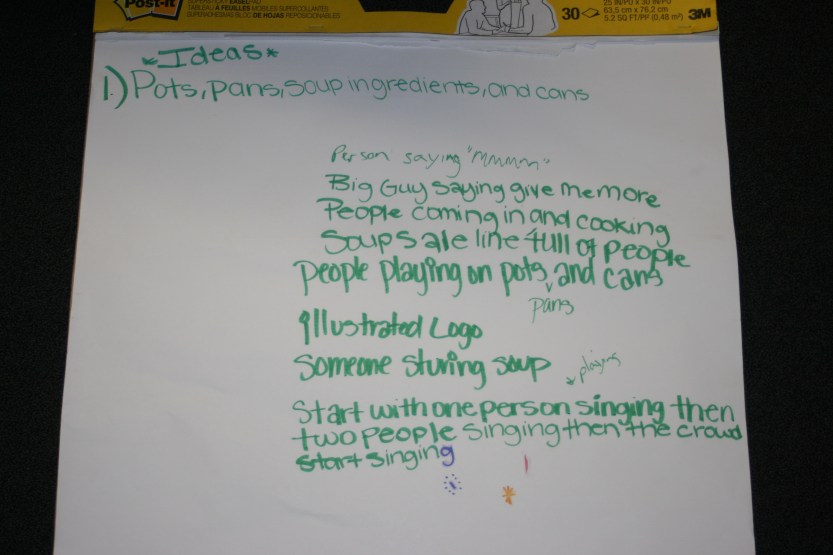 Post-it
SUPERSTICKY EASEL PAD
TABLEAU À FEUILLES MOBILES SUPERCOLLANTES
SUPERADHESIVAS BLOC DE HOJAS REPOSICIONABLES
30
25 IN/PO x 30 IN/PO
63,5 cm x 76,2 cm
5.2 SQ FT/PP (0,48 m²)
3M
*Ideas*
1.) Pots, pans, soup ingredients, and cans
Person saying "mmmm"
Big Guy saying give me more
People coming in and cooking
Soup sale line full of people
people playing on pots, and cans
pans
Illustrated Logo
Someone sturing soup
*playing
Start with one person singing then
two people singing then the crowd
start singing